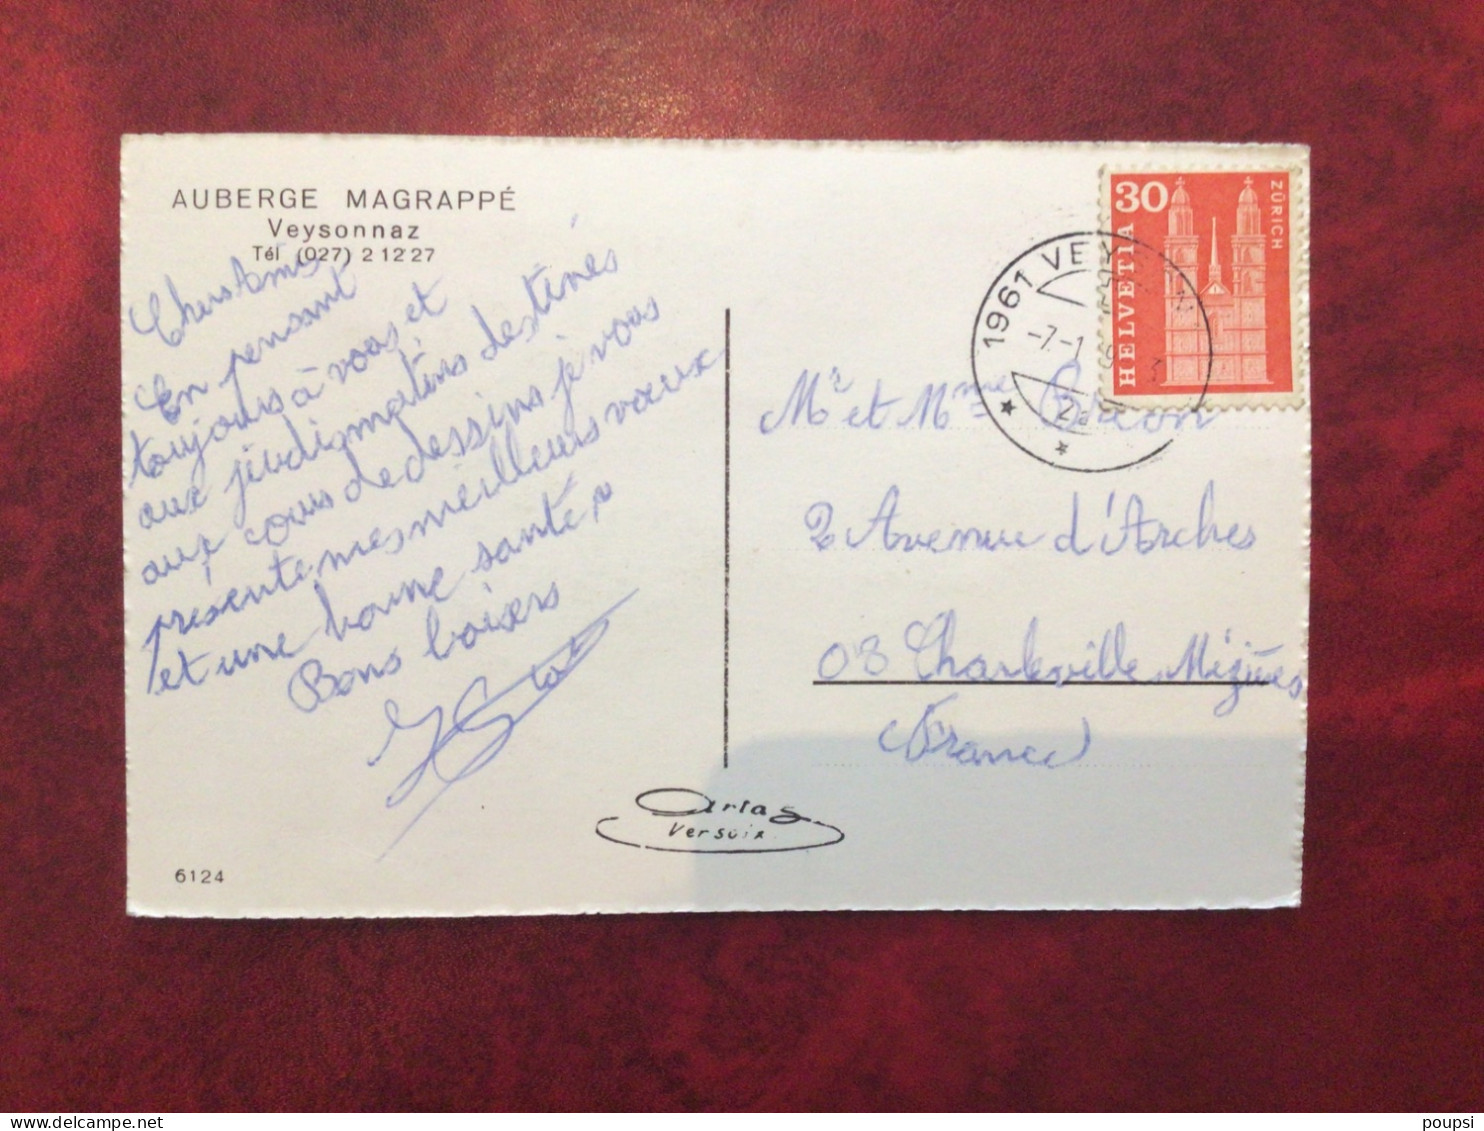 AUBERGE MAGRAPPÉ
Veysonnaz
Tél (027) 2 12 27
Chers Amis
En pensant
toujours à vous et
aux jeudis matins destinés
aux cours de dessins je vous
présente mes meilleurs vœux
et une bonne santé
Bons baisers
6124
Artas
Versoix
30
HELVETIA
ZÜRICH
1961 VEY
-7.-1
Mr et Mme
2 Avenue d'Arches
08 Charleville Mézières
France
poupsi